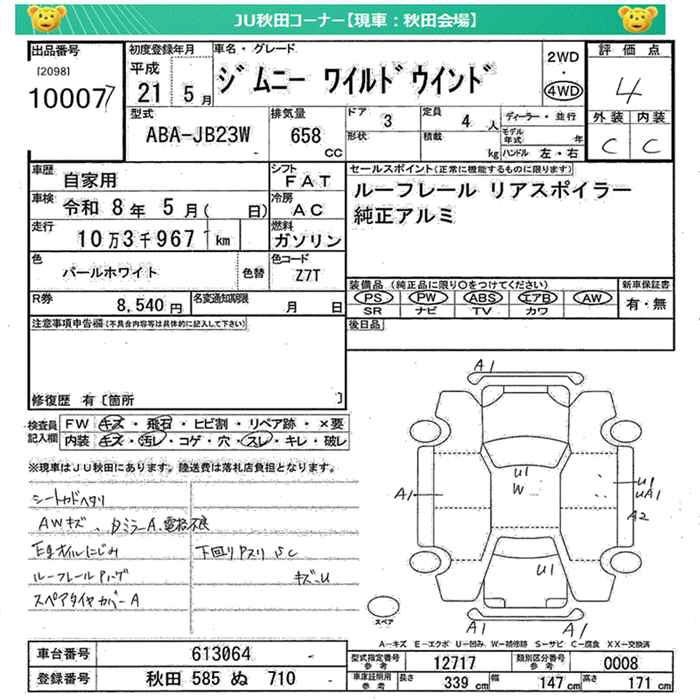 JU秋田コーナー【現車:秋田会場】
出品番号
[2098]
10007
初度登録年月
平成
21 5月
車名・グレード
ジムニー ワイルドウインド
2WD
・
4WD
評価点
4
外装 内装
C C
型式
ABA-JB23W
排気量
658 cc
ドア
3
形状
定員
4 人
積載
kg
ディーラー・並行
モデル年式 年
ハンドル 左・右
車歴
自家用
シフト
FAT
車検
令和 8年 5月( 日)
冷房
AC
走行
10万3千967 km
燃料
ガソリン
色
パールホワイト
色替
色コード
Z7T
R券
8,540 円
名変通知期限
月 日
セールスポイント(正常に機能するものに限ります)
ルーフレール リアスポイラー
純正アルミ
装備品(純正品に限り○をつけてください)
PS PW ABS エアB AW
SR ナビ TV カワ
新車保証書
有・無
後日品
注意事項申告欄(不具合内容等は具体的に記入して下さい)
修復歴 有〔箇所 〕
検査員記入欄
FW キズ・飛石・ヒビ割・リペア跡・×要
内装 キズ・汚レ・コゲ・穴・スレ・キレ・破レ
※現車はJU秋田にあります。陸送費は落札店負担となります。
シートカドヘタリ
AWキズ、
E/gオイルにじみ
下回りサスリ SC
キズ-U
スペアタイヤカバーA
A1
A1
U1
W
U1
UA1
A2
U1
A1
A1
スペア
A-キズ E-エクボ U-凹み W-補修跡 S-サビ C-腐食 XX-交換済
車台番号
613064
登録番号
秋田 585 ぬ 710
型式指定番号 参考
12717
類別区分番号 参考
0008
車庫証明用 参考
長さ 339 cm
幅 147 cm
高さ 171 cm